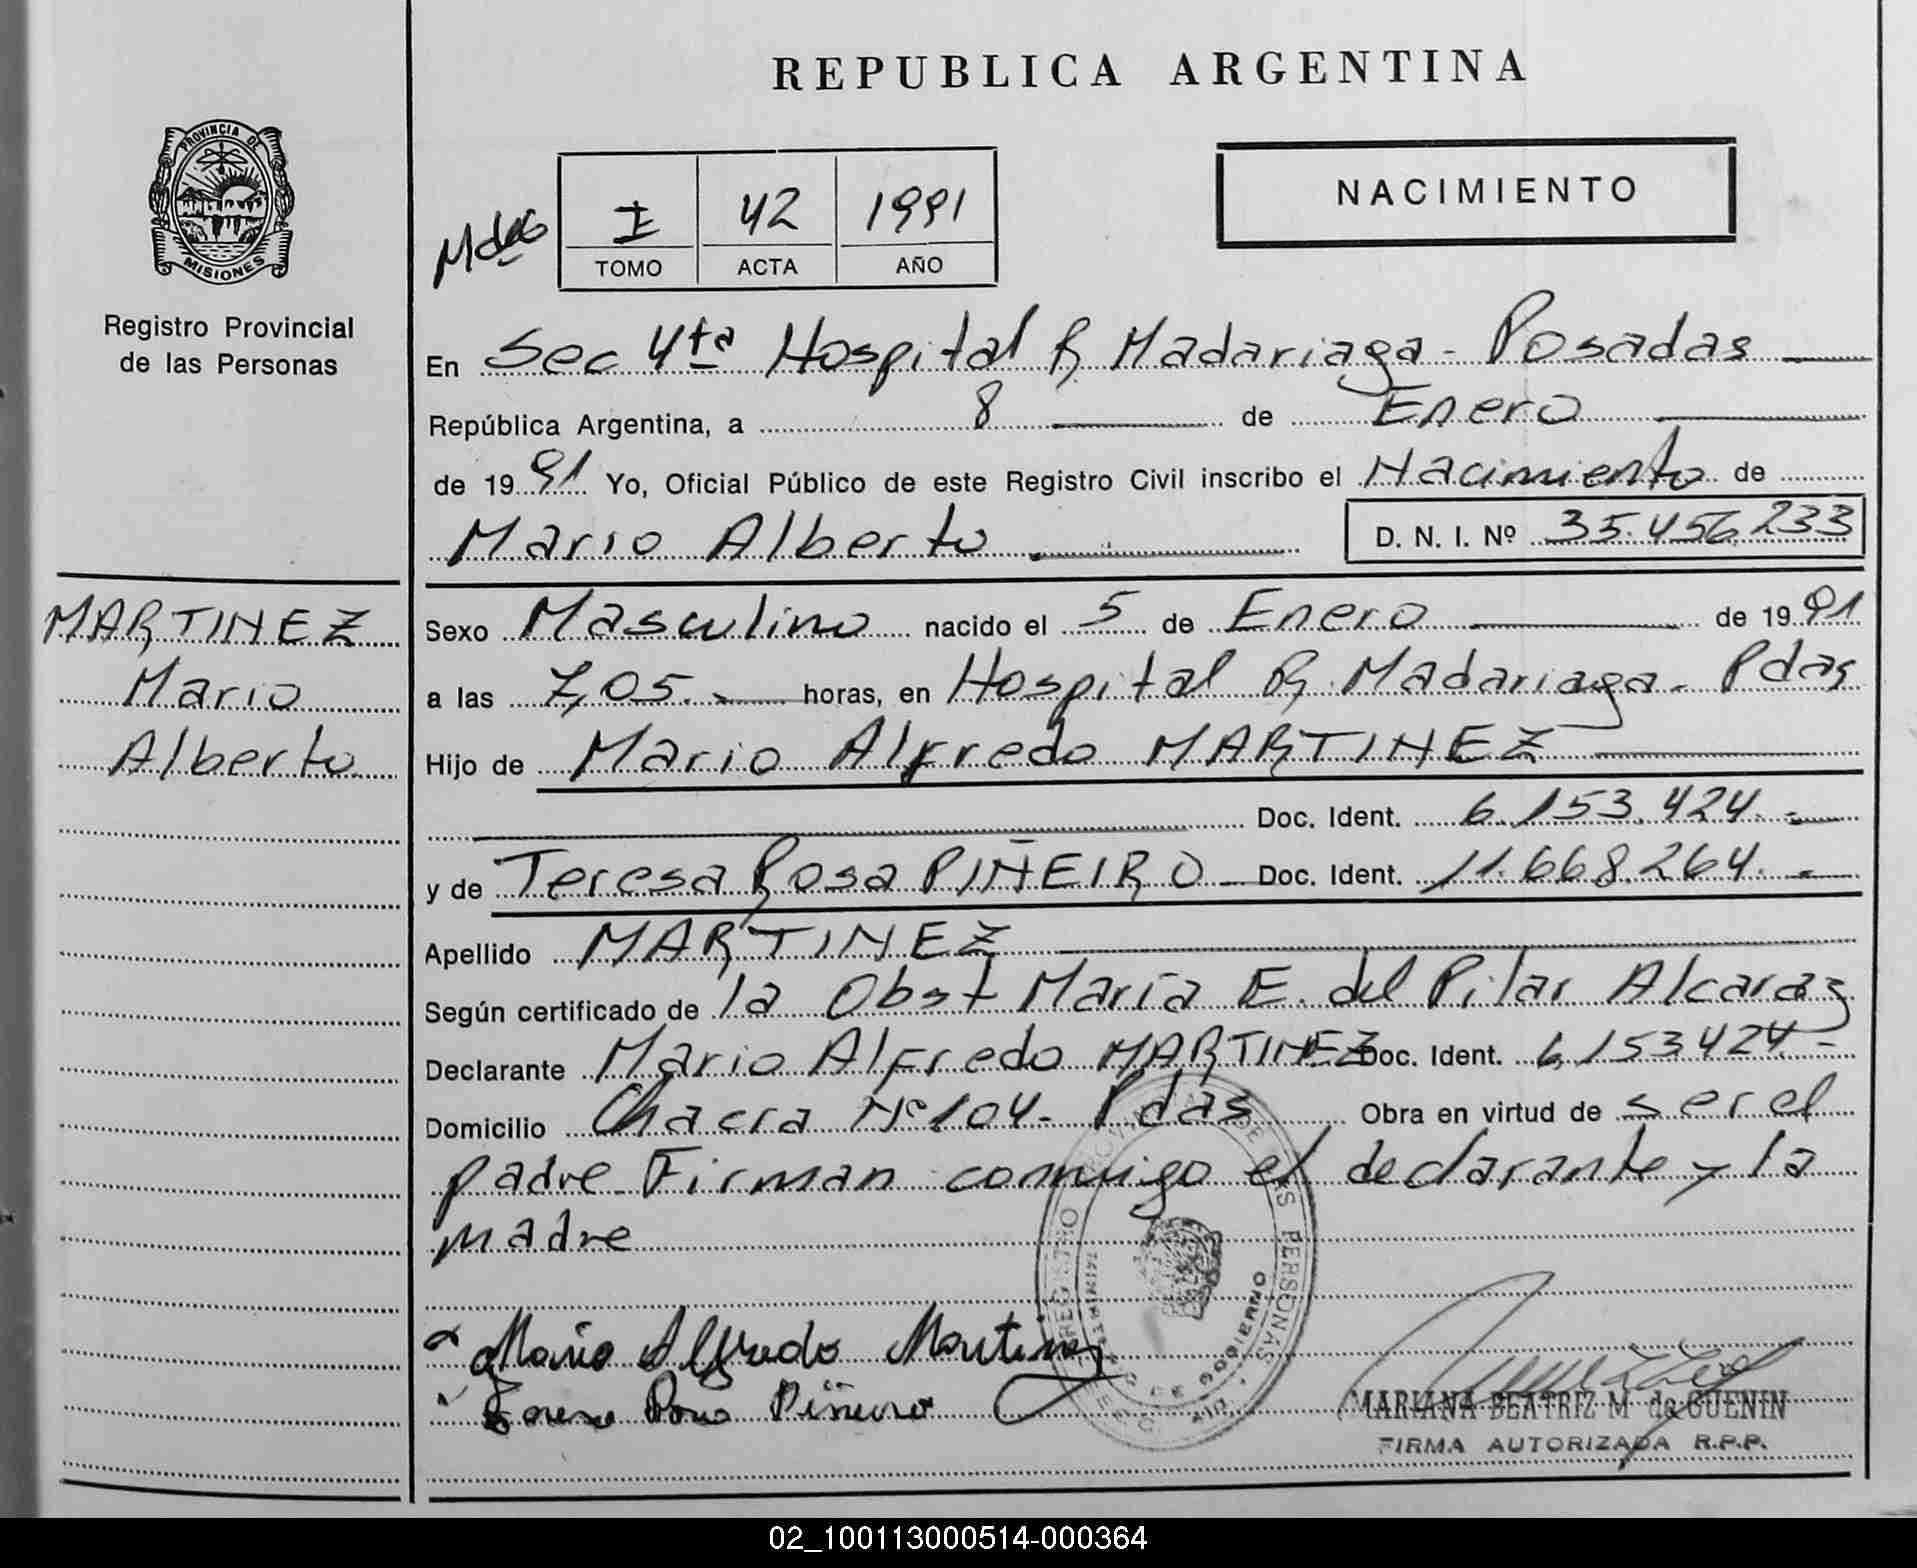 REPUBLICA ARGENTINA
PROVINCIA DE
MISIONES
Registro Provincial
de las Personas
NACIMIENTO
I 42 1991
TOMO ACTA AÑO
En Sec 4ta Hospital R Madariaga - Posadas
República Argentina, a 8 de Enero
de 1991 Yo, Oficial Público de este Registro Civil inscribo el Nacimiento de
Mario Alberto D. N. I. Nº 35.456.233
MARTINEZ
Mario
Alberto
Sexo Masculino nacido el 5 de Enero de 1991
a las 7,05.- horas, en Hospital R. Madariaga - Pdas
Hijo de Mario Alfredo MARTINEZ
Doc. Ident. 6.153.424.-
y de Teresa Rosa PIÑEIRO Doc. Ident. 11.668.264.-
Apellido MARTINEZ
Según certificado de la Obst María E. del Pilar Alcaraz
Declarante Mario Alfredo MARTINEZ Doc. Ident. 6.153424-
Domicilio Chacra Nº 104- Pdas Obra en virtud de ser el
padre Firman conmigo el declarante y la
madre
Mario Alfredo Martinez
Rosa Piñeiro
REGISTRO PROVINCIAL DE LAS PERSONAS
DE GOBIERNO
MARIANA BEATRIZ M de GUENIN
FIRMA AUTORIZADA R.P.P.
02_100113000514-000364